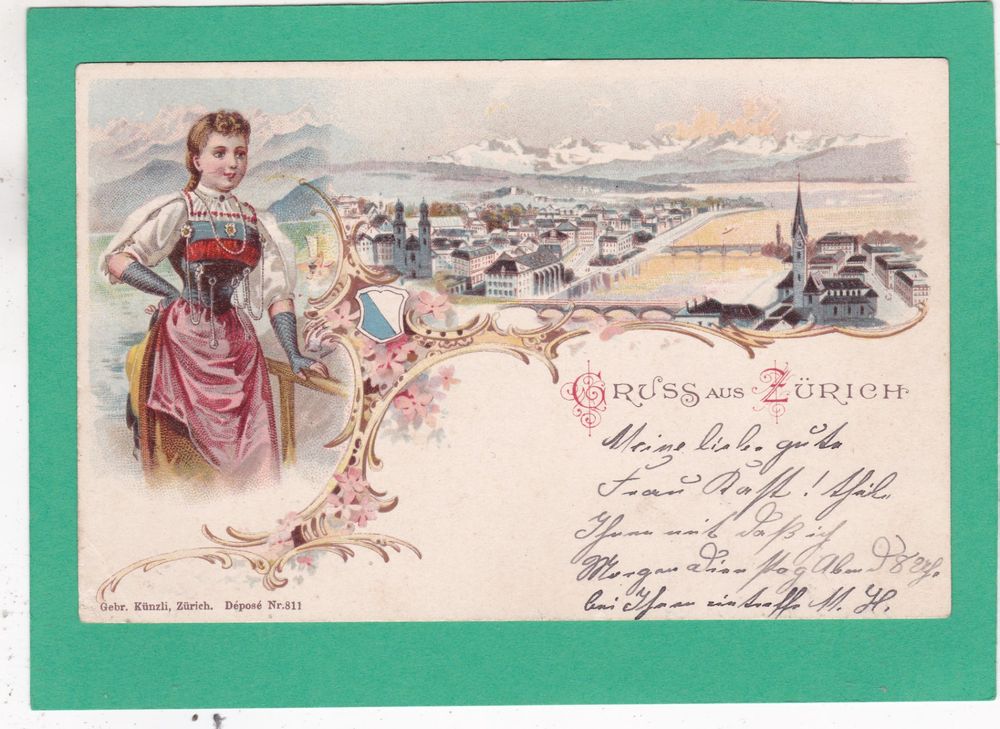 GRUSS AUS ZÜRICH
Meine liebe gute
Frau Rast! theile
Ihnen mit daß ich
Morgen Dienstag Abend 8 Uhr
bei Ihnen eintreffe M. H.
Gebr. Künzli, Zürich. Déposé Nr.811